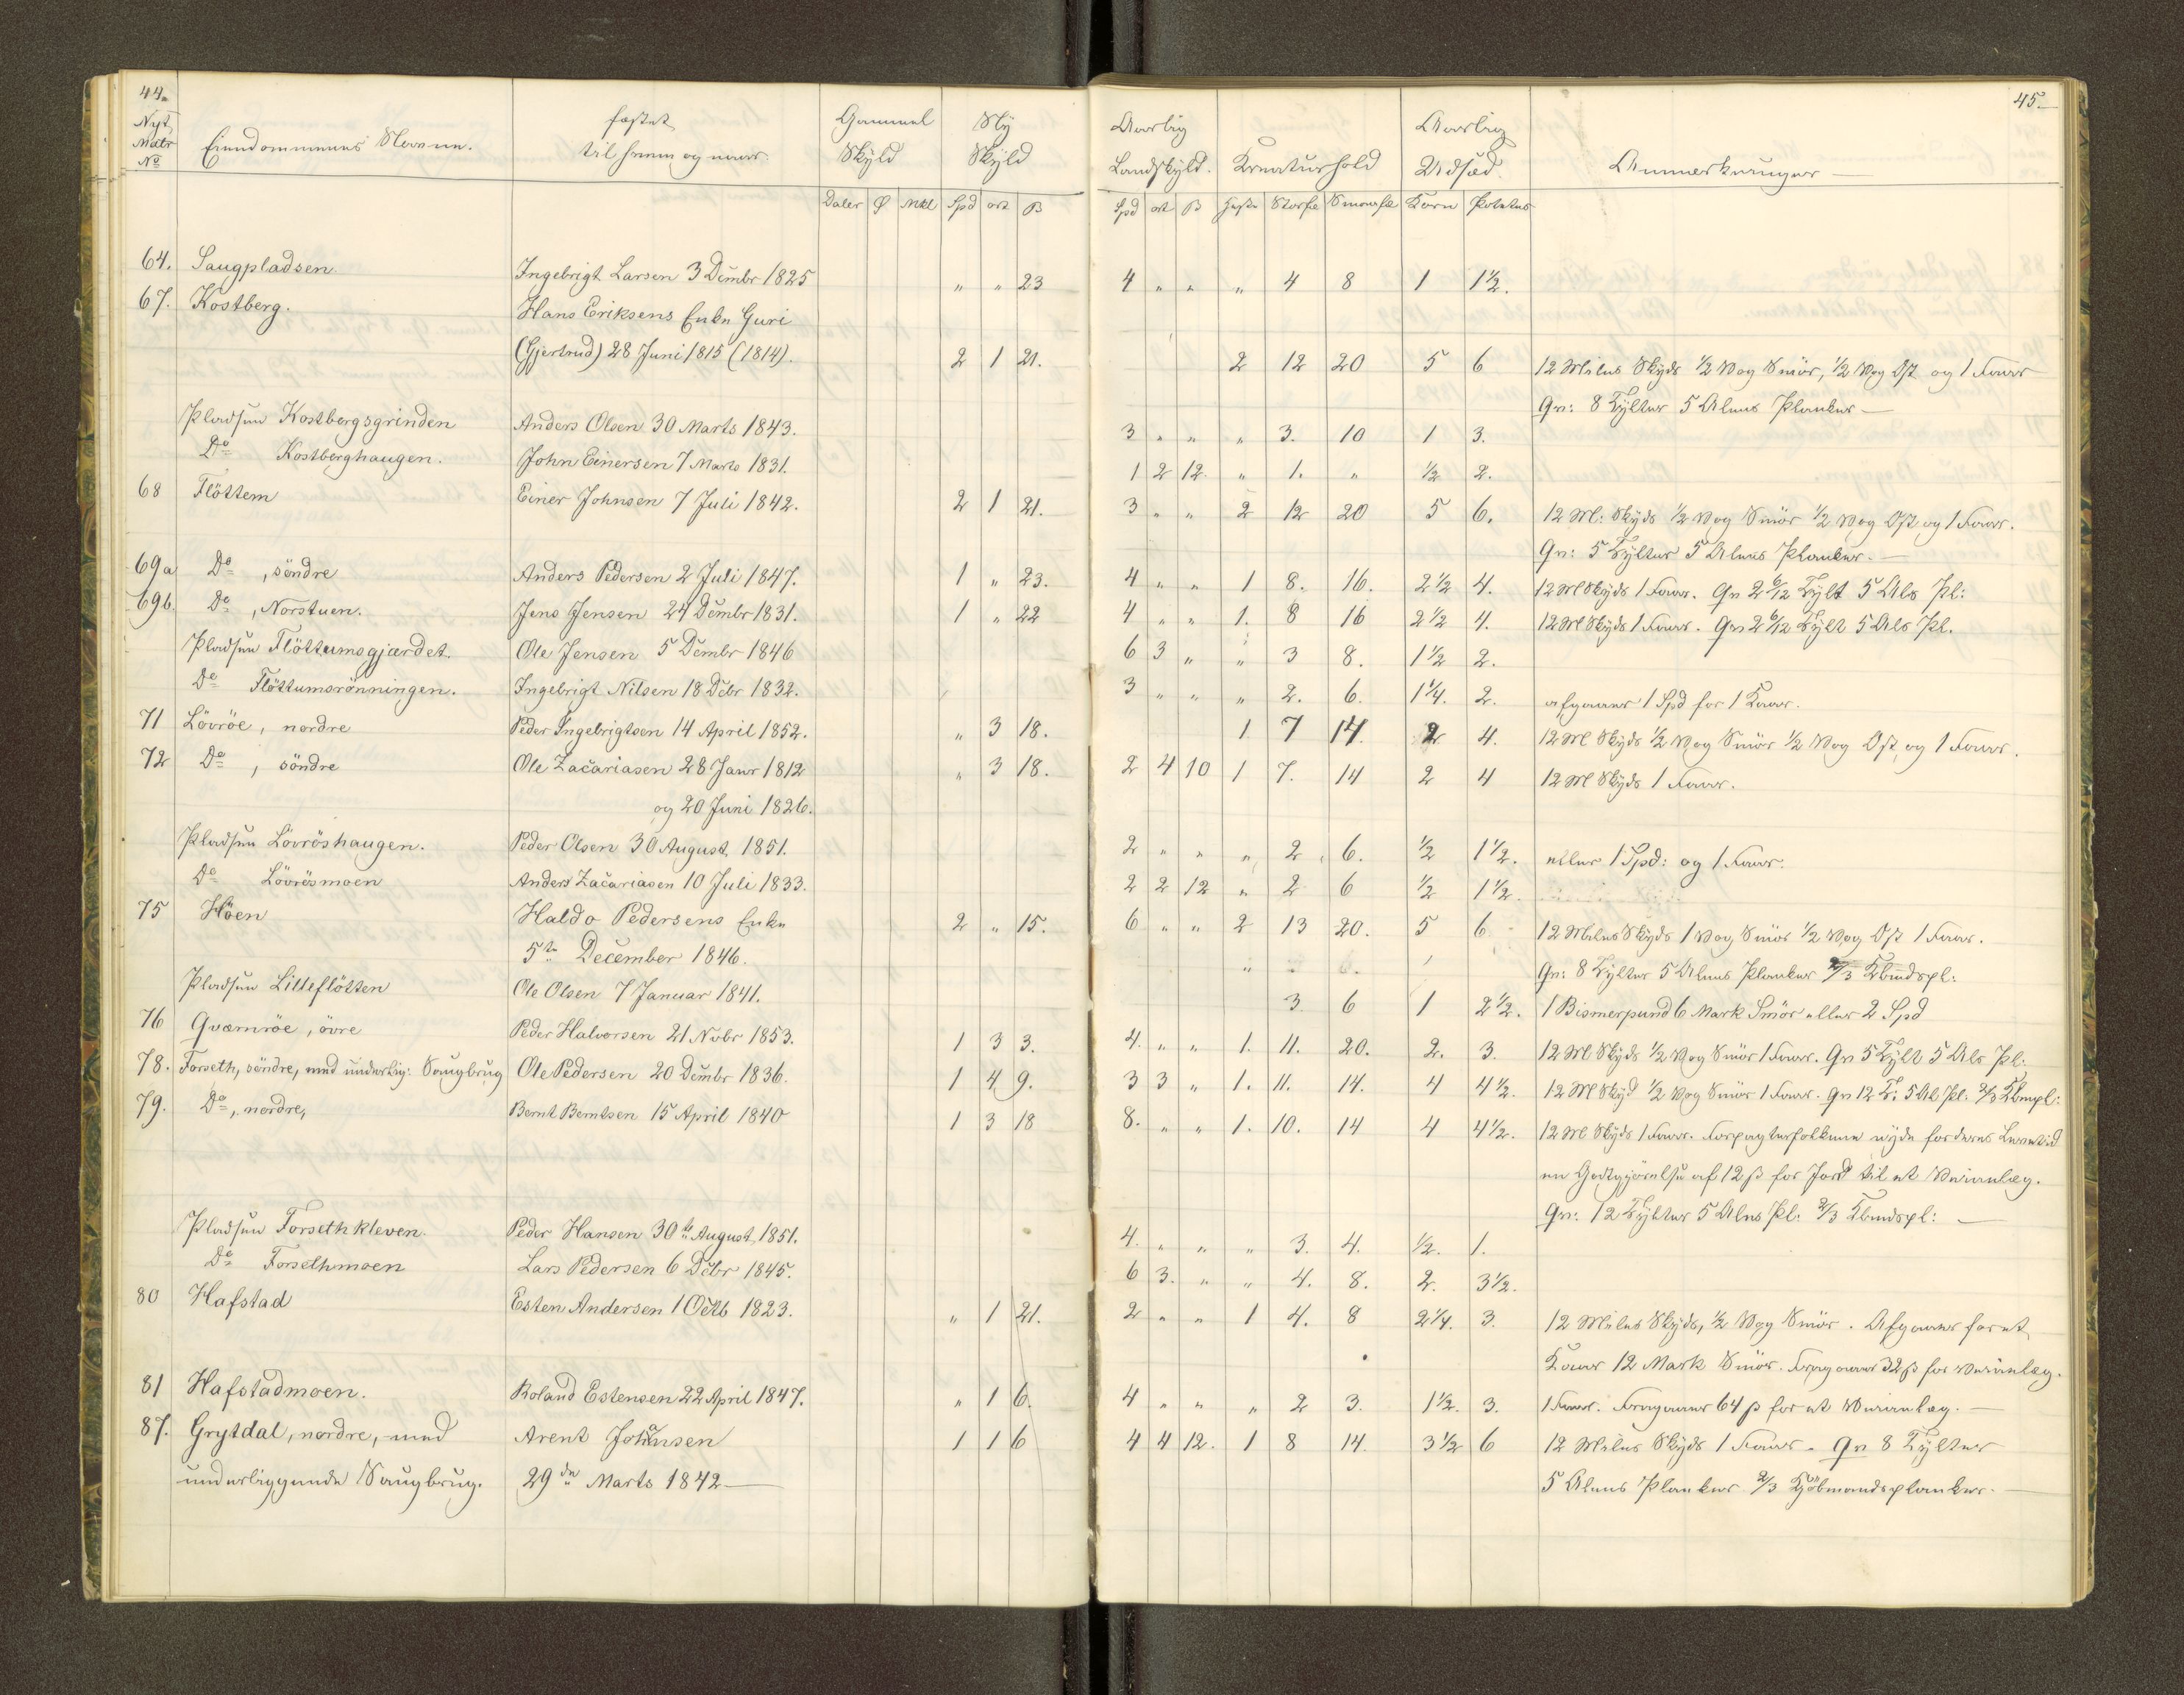 44.
Nyt
Matr
No
Eiendommens Navn.
fæstet
til hvem og naar.
Gammel
Skyld
Ny
Skyld
Daler Mkl Spd ort ß
64. Saugpladsen. Ingebrigt Larsen 3 Dcmbr 1825 " " 23
67. Kostberg. Hans Eriksens Enke Guri
(Gjertrud) 28 Juni 1815 (1814). 2 1 21.
Pladsen Kostbergsgrinden Anders Olsen 30 Marts 1843.
Do Kostberghaugen. John Einersen 7 Marts 1831.
68 Flöttem Einer Johnsen 7 Juli 1842. 2 1 21.
69a Do , söndre Anders Pedersen 2 Juli 1847. 1 " 23.
69b. Do , Norstuen. Jens Jensen 24 Dcmbr 1831. 1 " 22
Pladsen Flöttumsgjærdet. Ole Jensen 5 Dcmbr 1846
Do Flöttumsrönningen. Ingebrigt Nilsen 18 Dcbr 1832.
71 Lövröe, nordre Peder Ingebrigtsen 14 April 1852. " 3 18.
72 Do , söndre Ole Zacariasen 28 Janr 1812 " 3 18.
og 20 Juni 1826.
Pladsen Lövröshaugen. Peder Olsen 30 August 1851.
Do Lövrösmoen Anders Zacariasen 10 Juli 1833.
75 Höen Haldo Pedersens Enke 2 " 15.
5te December 1846.
Pladsen Lilleflötten Ole Olsen 7 Januar 1841.
76 Qvamröe, övre Peder Halvorsen 21 Nvbr 1853. 1 3 3.
78. Forseth, söndre, med underlig: Saugbrug Ole Pedersen 20 Dcmbr 1836. 1 4 9.
79. Do, nordre, Bernt Berntsen 15 April 1840 1 3 18
Pladsen Forsethkleven. Peder Hansen 30te August 1851.
Do Forsethmoen Lars Pedersen 6 Dcbr 1845.
80 Hafstad Esten Andersen 1 Octb 1823. " 1 21.
81 Hafstadmoen. Roland Estensen 22 April 1847. " 1 6.
87. Grytdal, nordre, med Arent Johnsen 1 1 6
underliggende Saugbrug. 29de Marts 1842
45.
Aarlig
Landskyld.
Kreaturhold
Aarlig
Udsæd.
Anmærkninger
Spd ort ß Heste Storfæ Smaafæ Korn Poteter
4 " " " 4 8 1 1½.
2 12 20 5 6 12 Miles Skyds ½ Vog Smör, ½ Vog Ost og 1 Faar
Gr: 8 Tylter 5 Alens Planker
3 " " " 3. 10 1 3.
1 2 12. " 1. " ½ 2.
3 " " 2 12 20 5 6. 12 Ml: Skyds ½ Vog Smör ½ Vog Ost og 1 Faar.
Gr: 5 Tylter 5 Alens Planker.
4 " " 1 8. 16. 2½ 4. 12 Ml Skyds 1 Faar. Gr 2 6/12 Tylt 5 Als Pl:
4 " " 1. 8 16 2½ 4. 12 Ml Skyds 1 Faar. Gr 2 6/12 Tylt 5 Als Pl.
6 3 " " 3 8. 1½ 2.
3 " " " 2. 6. 1¼. 2. afgaaer 1 Spd for 1 Kaar.
1 7 14. 2 4. 12 Ml Skyds ½ Vog Smör ½ Vog Ost, og 1 Faar.
2 4 10 1 7. 14 2 4 12 Ml Skyds 1 Faar.
2 " " " 2 6. ½ 1½. eller 1 Spd: og 1 Faar.
2 2 12 " 2 6 ½ 1½.
6 " " 2 13 20. 5 6 12 Miles Skyds 1 Vog Smör ½ Vog Ost 1 Faar.
Gr: 8 Tylter 5 Alens Planker 2/3 Kbmdspl:
3 6 1 2½. 1 Bismerpund 6 Mark Smör eller 2 Spd
4. " " 1. 11. 20. 2. 3. 12 Ml Skyds ½ Vog Smör 1 Faar. Gr 5 Tylt 5 Als Pl:
3 3 " 1. 11. 14. 4 4½. 12 Ml Skyd ½ Vog Smör 1 Faar. Gr 12 T. 5 Al Pl. 2/3 Kbmpl:
8. " " 1. 10. 14 4 4½. 12 Ml Skyds 1 Faar. Forpagterfolkene nyde for deres Levetid
en Godtgjörelse af 12 ß for Jord til et Veianlæg.
Gr: 12 Tylter 5 Alns Pl: 2/3 Kbmdspl:
4. " " " 3. 4. ½. 1.
6 3. " " 4. 8. 2. 3½.
2 " " 1 4. 8 2¼. 3. 12 Miles Skyds, ½ Vog Smör. Afgaaer for et
Kaar 12 Mark Smör. Fragaaer 32 ß for Veianlæg.
4 " " " 2 3. 1½. 3. 1 Faar. Fragaaer 64 ß for et Veianlæg.
4 4 12. 1 8 14. 3½ 6 12 Miles Skyds 1 Faar. Gr 8 Tylter
5 Alens Planker 2/3 Kjöbmandsplanker.